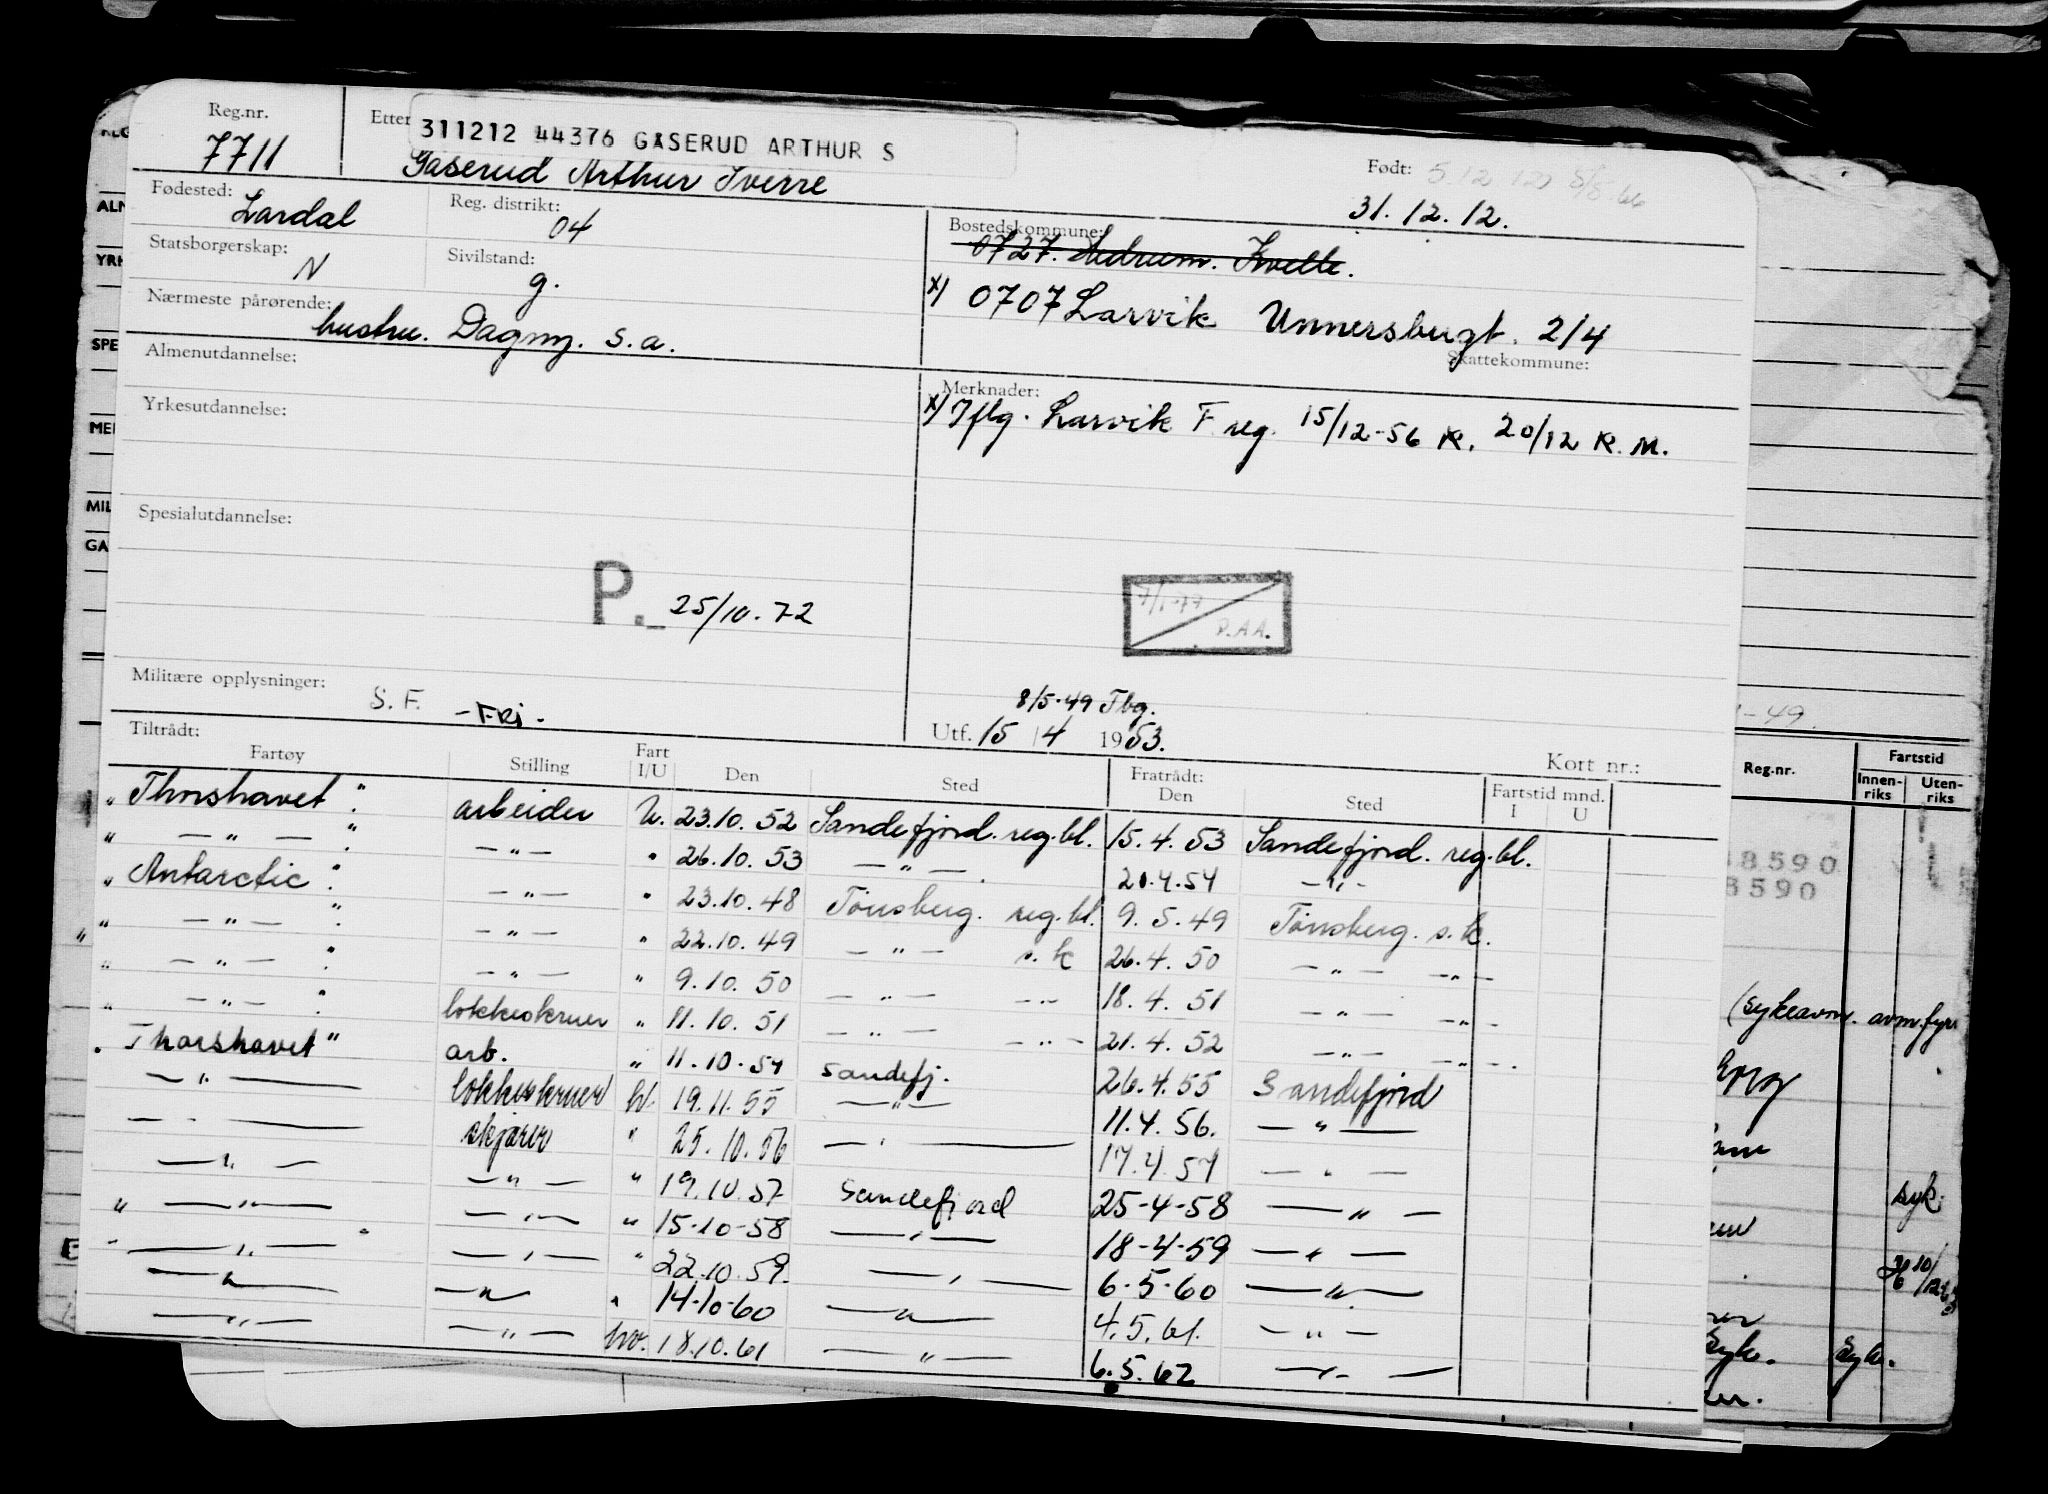 Reg.nr.
7711
Etter
311212 44376 GASERUD ARTHUR S
Gaserud Arthur Sverre
Født:
31.12.12.
Fødested: Lardal
Reg. distrikt: 04
Statsborgerskap: N
Sivilstand: g.
Nærmeste pårørende: hustru. Dagny. s.a.
Bostedskommune:
0727. Hedrum. Kvelle.
x) 0707 Larvik Unnersbugt. 2/4
Skattekommune:
Almenutdannelse:
Yrkesutdannelse:
Merknader:
x) Iflg. Larvik F.reg. 15/12-56 K. 20/12 K.M.
Spesialutdannelse:
P. 25/10.72
P.A.A.
Militære opplysninger: S.F. -FRI-
8/5-49 Tbg.
Utf. 15/4 1953.
Kort nr.:
Tiltrådt:
Fartøy Stilling Fart I/U Den Sted Fratrådt: Den Sted Fartstid mnd. I U
" Thorshavet " arbeider U. 23.10.52 Sandefjord. reg.bl. 15.4.53 Sandefjord. reg.bl.
" — " — " — " — " 26.10.53 — " — 21.4.54 — " —
" Antarctic " — " — " 23.10.48 Tönsberg. reg.bl. 9.5.49 Tönsberg. s.k.
" — " — " — " — " 22.10.49 — " — s.k 26.4.50 — " — — " —
" — " — " — " — " 9.10.50 — " — — " — 18.4.51 — " — — " —
" — " — " kokkeskruer " 11.10.51 — " — — " — 21.4.52 — " — — " —
" Thorshavet " arb. " 11.10.54 Sandefj. 26.4.55 Sandefjord
— " — kokkeskruer hv. 19.11.55 — " — 11.4.56. — " —
— " — skjærer " 25.10.56 — " — 17.4.57 — " —
— " — — " — " 19.10.57 Sandefjord 25-4-58 — " —
" — " — — " — " 15-10-58 — " — 18-4-59 — " —
" — " — " — " — " 22.10.59. — " — 6-5-60 — " —
— " — — " — " 14-10-60 — " — 4.5.61. — " —
— " — — " — hv. 18.10.61 — " — 6.5.62 — " —
ALM
YRK
SPE
MIL
GA
-49.
Reg.nr.
Fartstid
Innen-
riks
Uten-
riks
8590
8590
(sykeavm. avm.fyr
syk.
Syk. Syk.